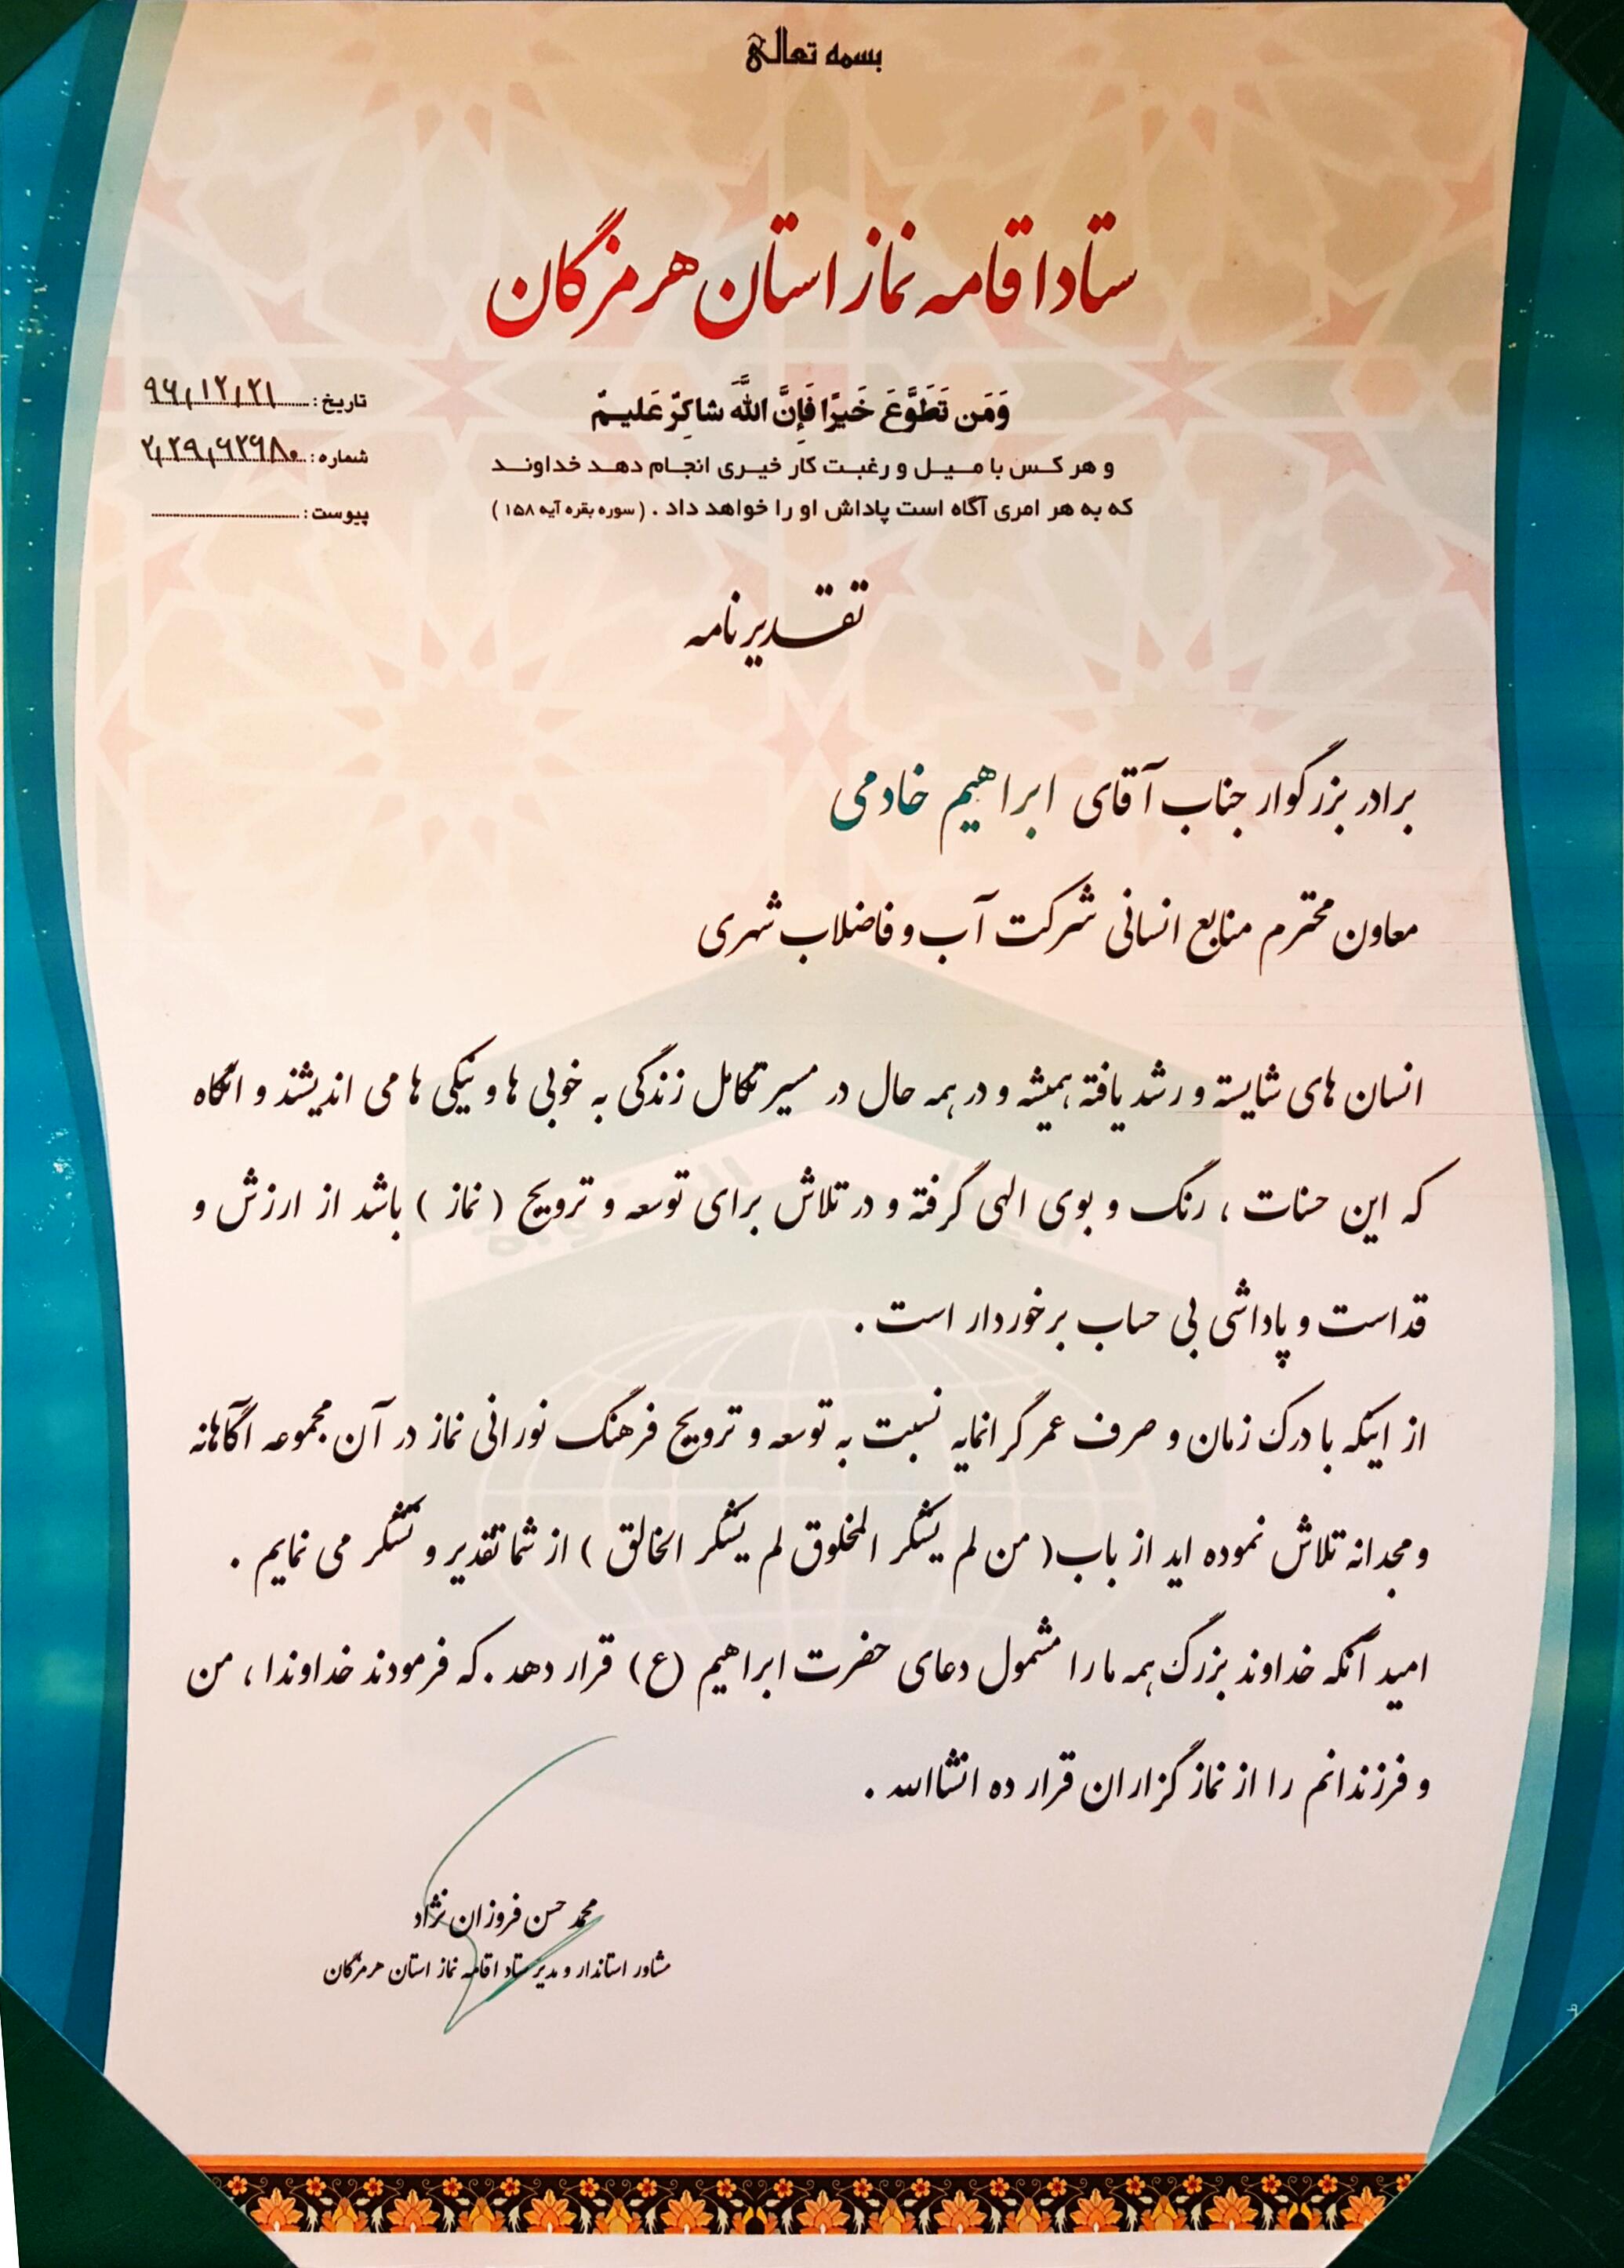 بسمه تعالی
ستاد اقامه نماز استان هرمزگان
وَمَن تَطَوَّعَ خَیرًا فَإِنَّ اللَّهَ شاکِرٌ عَلیمٌ
و هر کس با میل و رغبت کار خیری انجام دهد خداوند
که به هر امری آگاه است پاداش او را خواهد داد . (سوره بقره آیه ۱۵۸)
تاریخ: ۹۶/۱۲/۲۱
شماره:
پیوست:
تقدیرنامه
برادر بزرگوار جناب آقای ابراهیم خادمی
معاون محترم منابع انسانی شرکت آب و فاضلاب شهری
انسان های شایسته و رشد یافته همیشه و در همه حال در مسیر تکامل زندگی به خوبی ها و نیکی ها می اندیشند و انگاه
که این حسنات ، رنگ و بوی الهی گرفته و در تلاش برای توسعه و ترویج ( نماز ) باشد از ارزش و
قداست و پاداشی بی حساب برخوردار است .
از اینکه با درک زمان و صرف عمر گرانمایه نسبت به توسعه و ترویج فرهنگ نورانی نماز در آن مجموعه آگاهانه
و مجدانه تلاش نموده اید از باب ( من لم یشکر المخلوق لم یشکر الخالق ) از شما تقدیر و تشکر می نمایم .
امید آنکه خداوند بزرگ همه ما را مشمول دعای حضرت ابراهیم (ع) قرار دهد . که فرمودند خداوندا ، من
و فرزندانم را از نماز گزاران قرار ده انشاالله .
محمد حسن فروزان نژاد
مشاور استاندار و مدیر ستاد اقامه نماز استان هرمزگان